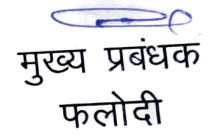 मुख्य प्रबंधक
फलोदी